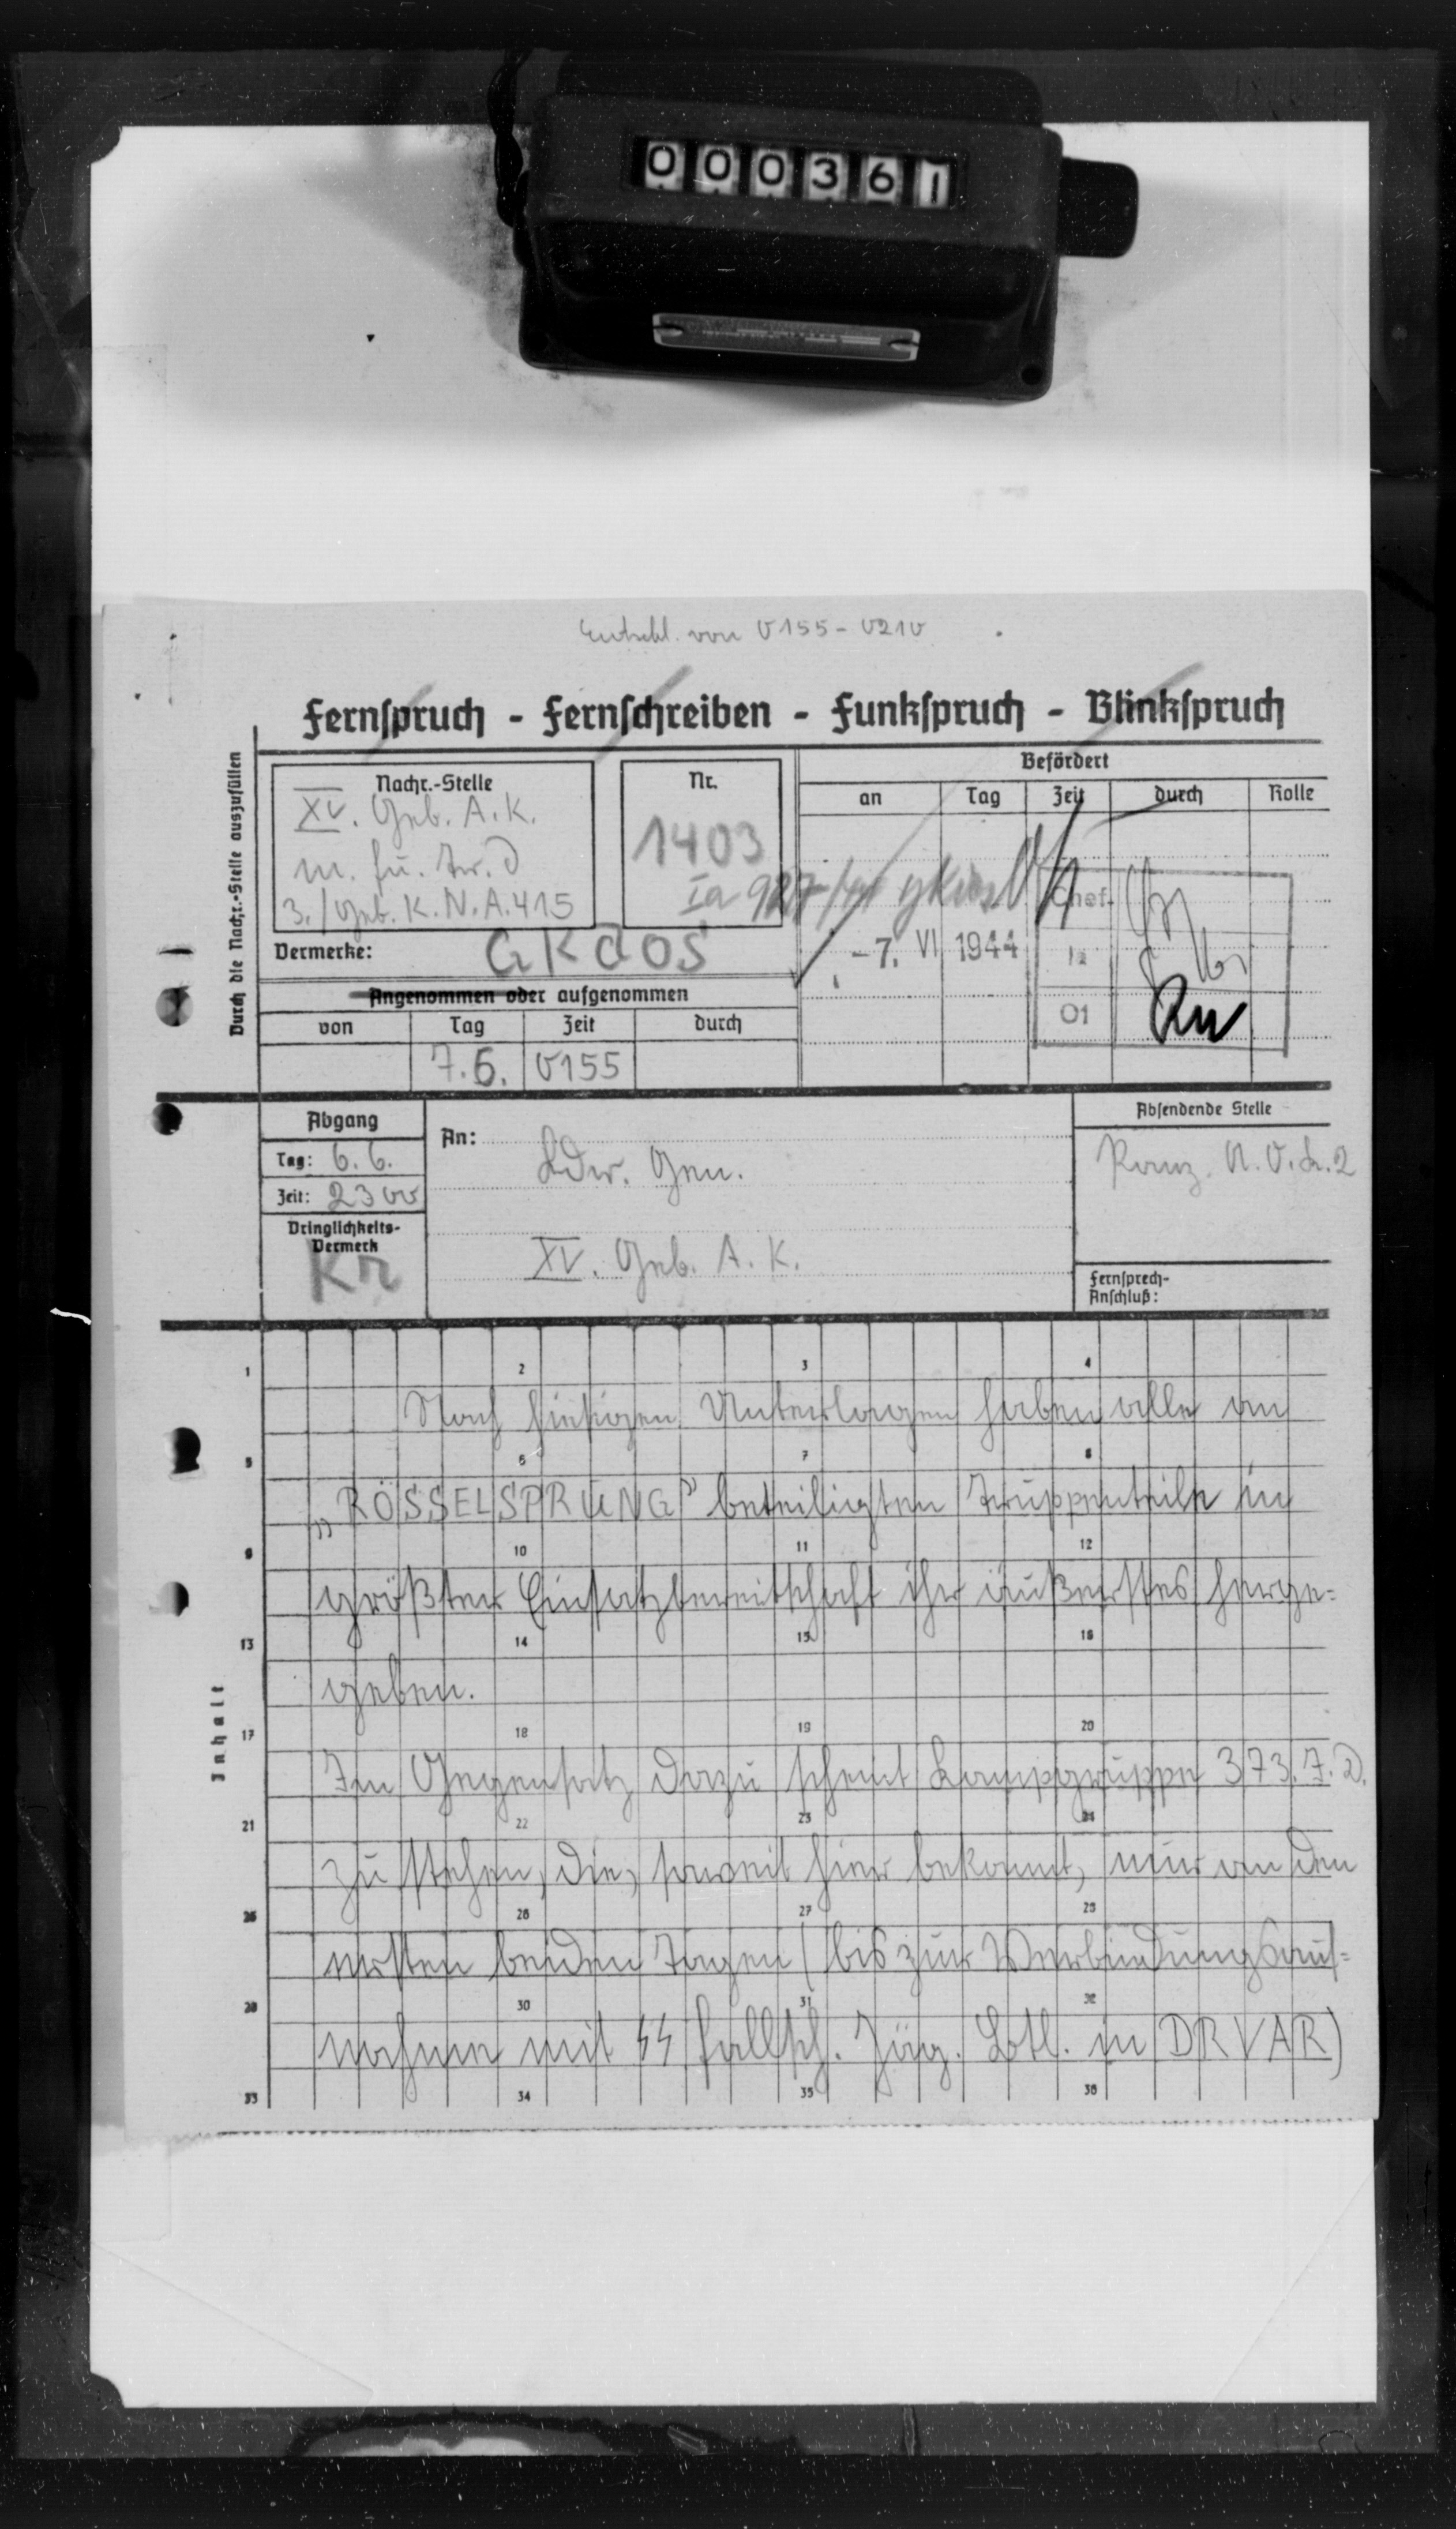 000361
Entschl. von 0155 - 0210
Fernspruch - Fernschreiben - Funkspruch - Blinkspruch
Durch die Nachr.-Stelle auszufüllen
Nachr.-Stelle
XV. Geb. A.K.
m. fu. Tr. d
3./Geb. K.N.A. 415
Nr.
1403
Ia 927/44 gKdos
Befördert
an Tag Zeit durch Rolle
Chef
-7. VI 1944
Ia
01
Vermerke: GKdos
Angenommen oder aufgenommen
von Tag Zeit durch
7.6. 0155
Abgang
Tag: 6.6.
Zeit: 2300
Dringlichkeits-
Vermerk
KR
An:
Kdr. Gen.
XV. Geb. A.K.
Absendende Stelle
Panz. A.O.K. 2
Fernsprech-
Anschluß:
Inhalt
1 2 3 4
Nach hiesigen Unterlagen haben alle an
5 6 7 8
„RÖSSELSPRUNG" beteiligten Truppenteile in
9 10 11 12
größter Einsatzbereitschaft ihr äußerstes herge=
13 14 15 16
geben.
17 18 19 20
Im Gegensatz dazu scheint Kampfgruppe 373. J.D.
21 22 23 24
zu stehen, die, soweit hier bekannt, nur an den
25 26 27 28
ersten beiden Tagen (bis zur Verbindungsauf=
29 30 31 32
nahme mit SS Fallsch. Jäg. Btl. in DRVAR)
33 34 35 36